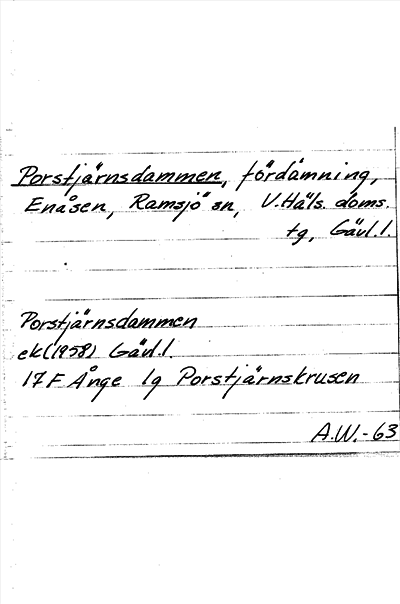 Porstjärnsdammen, fördämning,
Enåsen, Ramsjö sn, V. Häls. doms.
tg, Gävl. l.
Porstjärnsdammen
ek (1958) Gävl. l.
17 F Ånge 1g Porstjärnskrusen
A.W.-63